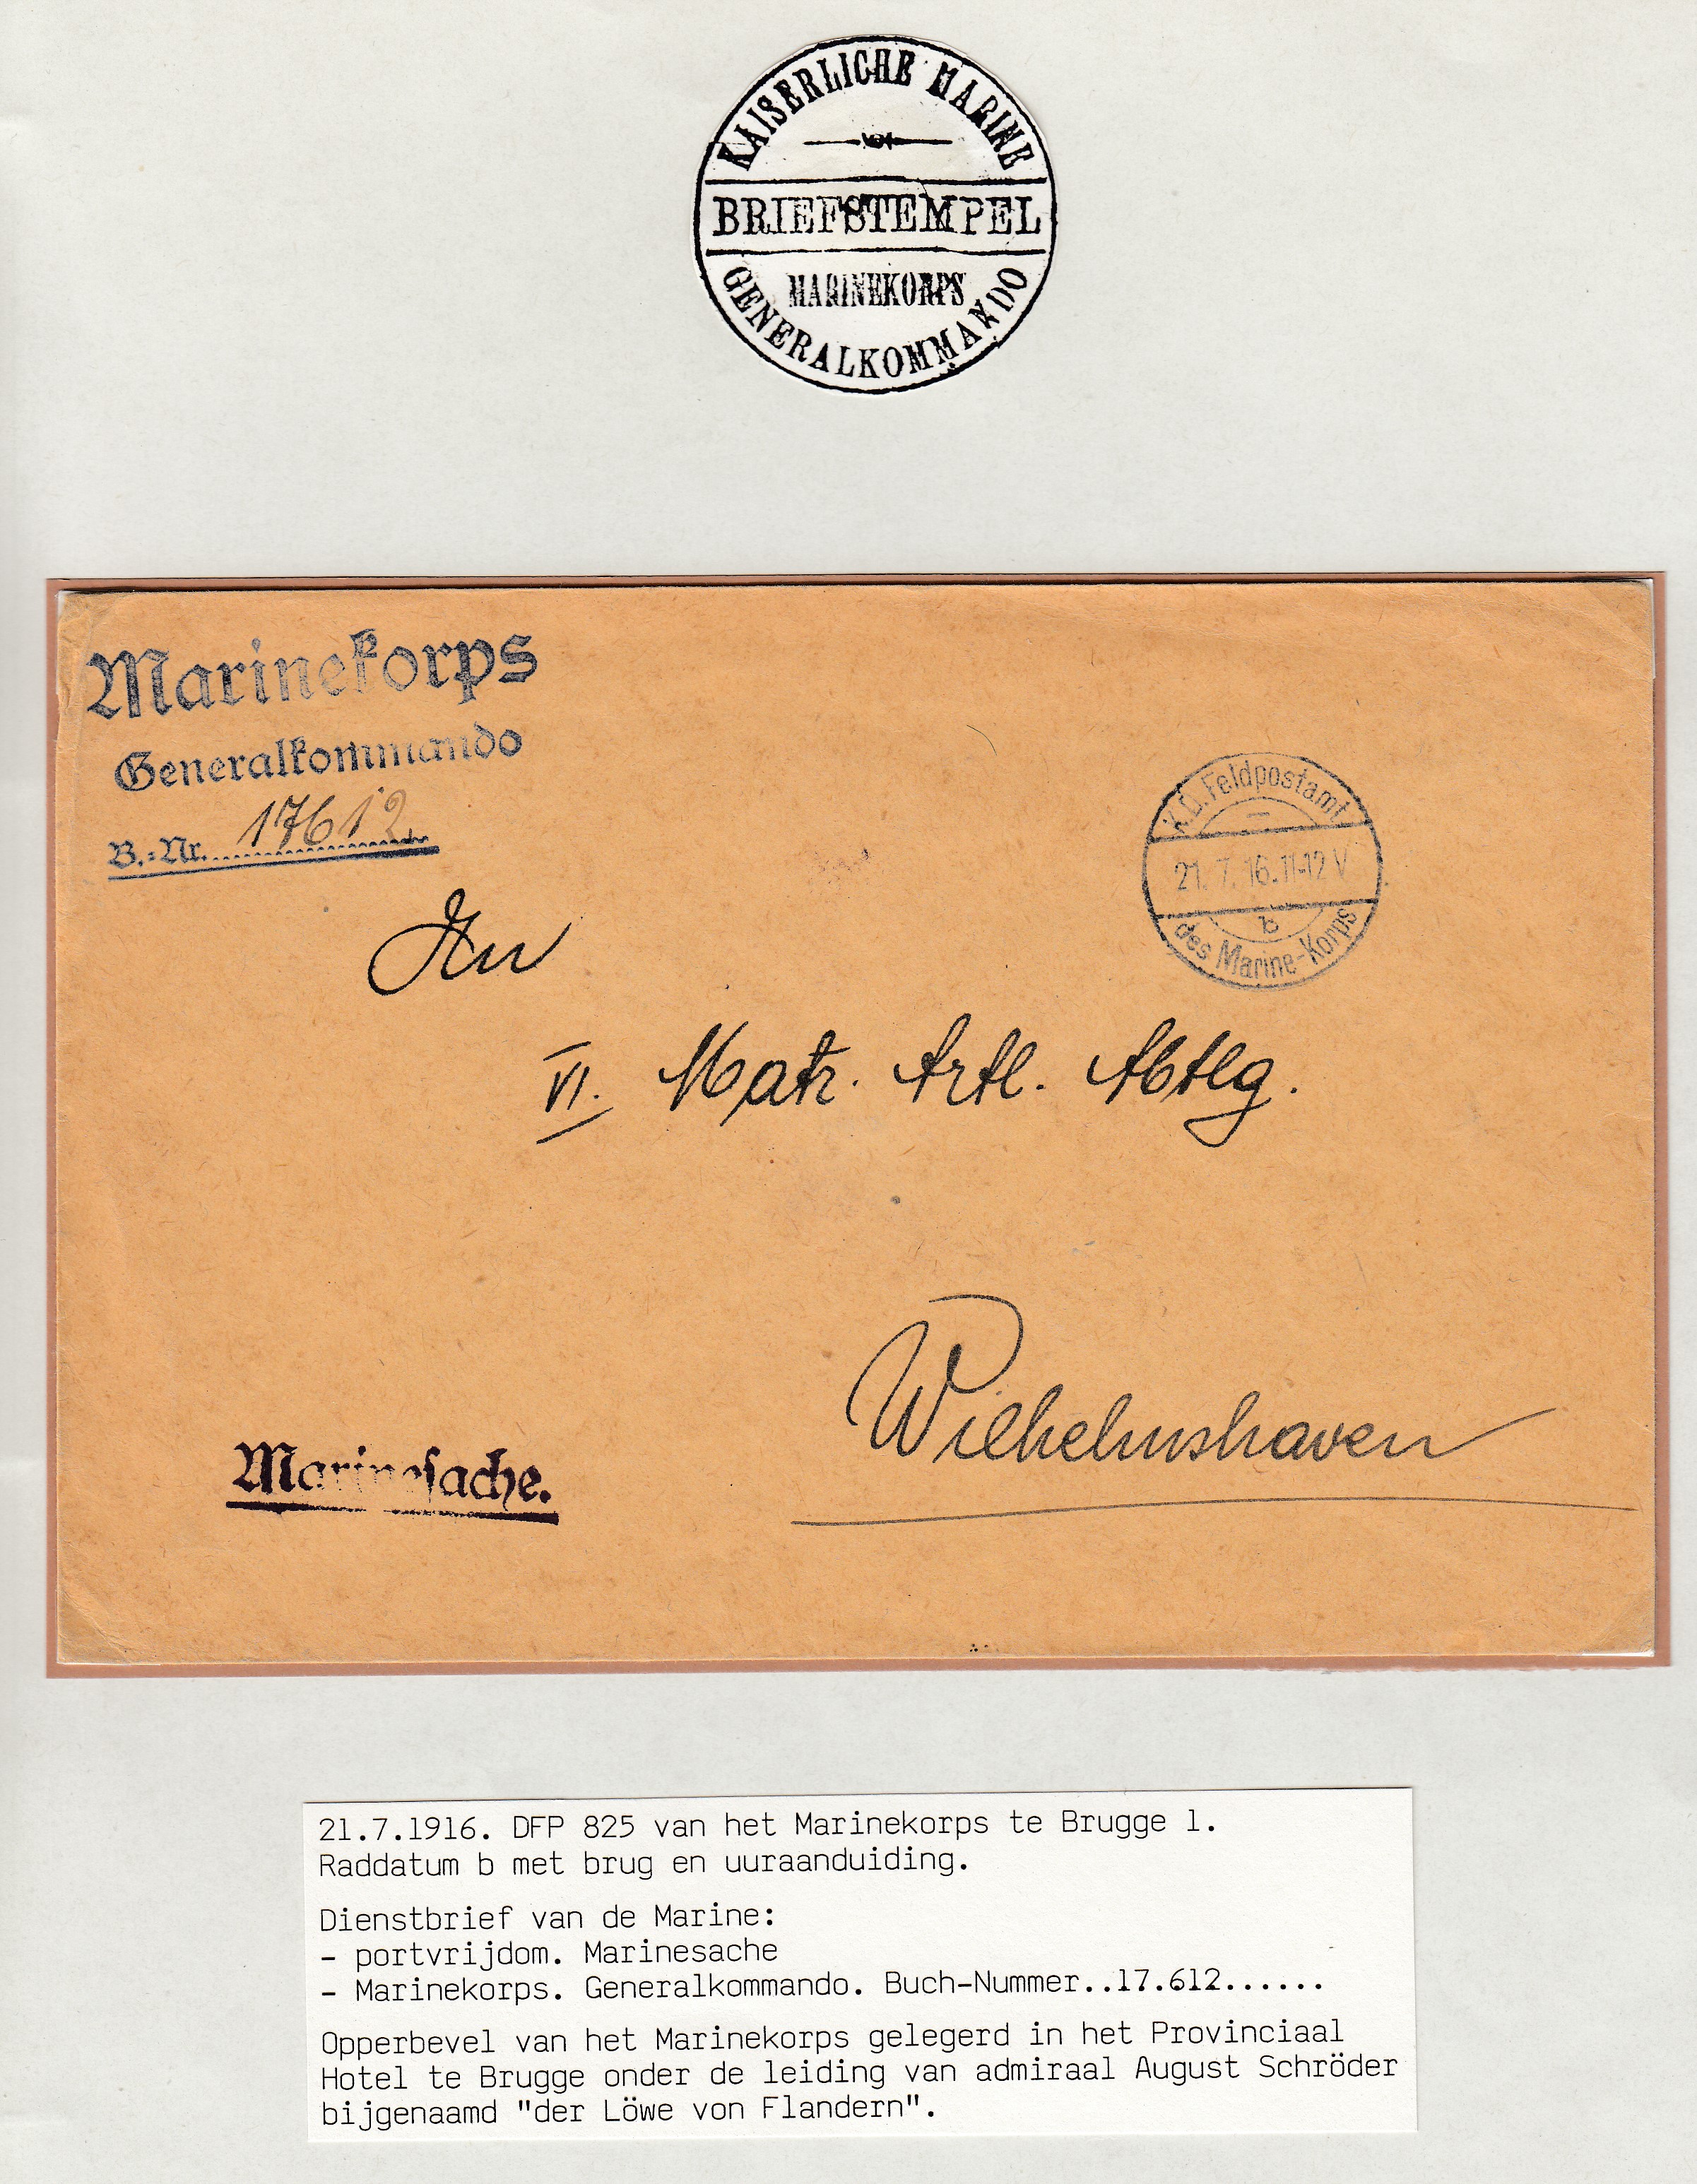 KAISERLICHE MARINE
BRIEFSTEMPEL
MARINEKORPS
GENERALKOMMANDO
Marinekorps
Generalkommando
B.=Nr. 17612
K.D. Feldpostamt
21. 7. 16. 11-12 V
b
des Marine-Korps
An
VI. Matr. Artl. Abtlg.
Wilhelmshaven
Marinesache.
21.7.1916. DFP 825 van het Marinekorps te Brugge 1.
Raddatum b met brug en uuraanduiding.
Dienstbrief van de Marine:
- portvrijdom. Marinesache
- Marinekorps. Generalkommando. Buch-Nummer..17.612......
Opperbevel van het Marinekorps gelegerd in het Provinciaal
Hotel te Brugge onder de leiding van admiraal August Schröder
bijgenaamd "der Löwe von Flandern".